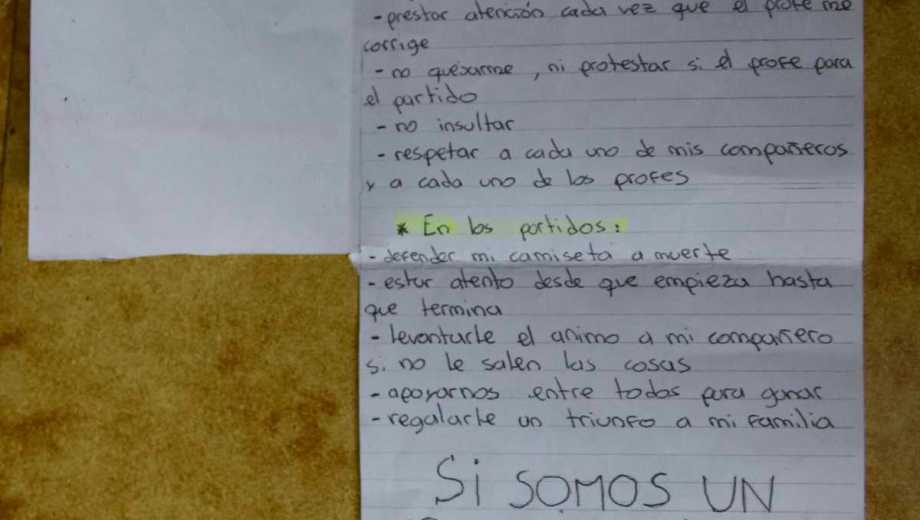 - prestar atención cada vez que el profe me
corrige
- no quejarme, ni protestar si el profe para
el partido
- no insultar
- respetar a cada uno de mis compañeros
y a cada uno de los profes
* En los partidos:
- defender mi camiseta a muerte
- estar atento desde que empieza hasta
que termina
- levantarle el animo a mi compañero
si no le salen las cosas
- apoyarnos entre todos para ganar
- regalarle un triunfo a mi familia
Si SOMOS UN